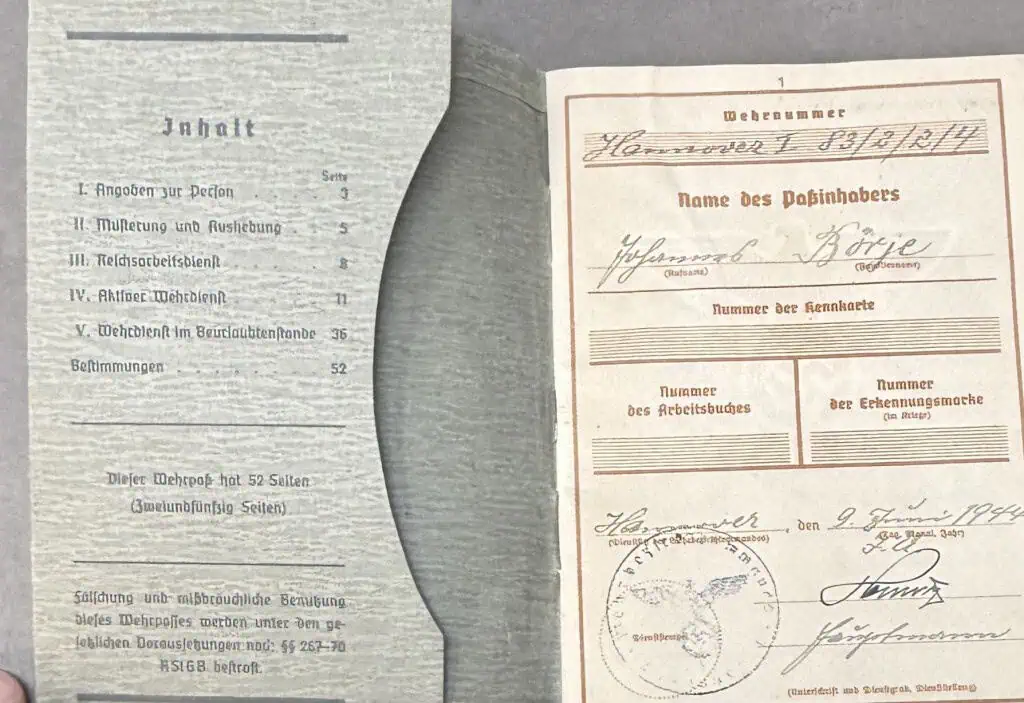 Inhalt
Seite
I. Angaben zur Person . . . . . 3
II. Musterung und Aushebung . . 5
III. Reichsarbeitsdienst . . . . . 8
IV. Aktiver Wehrdienst . . . . . 11
V. Wehrdienst im Beurlaubtenstande 36
Bestimmungen . . . . . . . 52
Dieser Wehrpaß hat 52 Seiten
(Zweiundfünfzig Seiten)
Fälschung und mißbräuchliche Benutzung
dieses Wehrpasses werden unter den ge-
setzlichen Voraussetzungen nach §§ 267-70
RStGB bestraft.
1
Wehrnummer
Hannover I 83/2/2/4
Name des Paßinhabers
Johannes Börje
(Rufname) (Familienname)
Nummer der Kennkarte
Nummer
des Arbeitsbuches
Nummer
der Erkennungsmarke
(im Kriege)
Hannover, den 9. Juni 1944
(Dienststelle des Wehrbezirkskommandos) (Tag, Monat, Jahr)
Dienststempel
Hauptmann
(Unterschrift und Dienstgrad, Dienststellung)